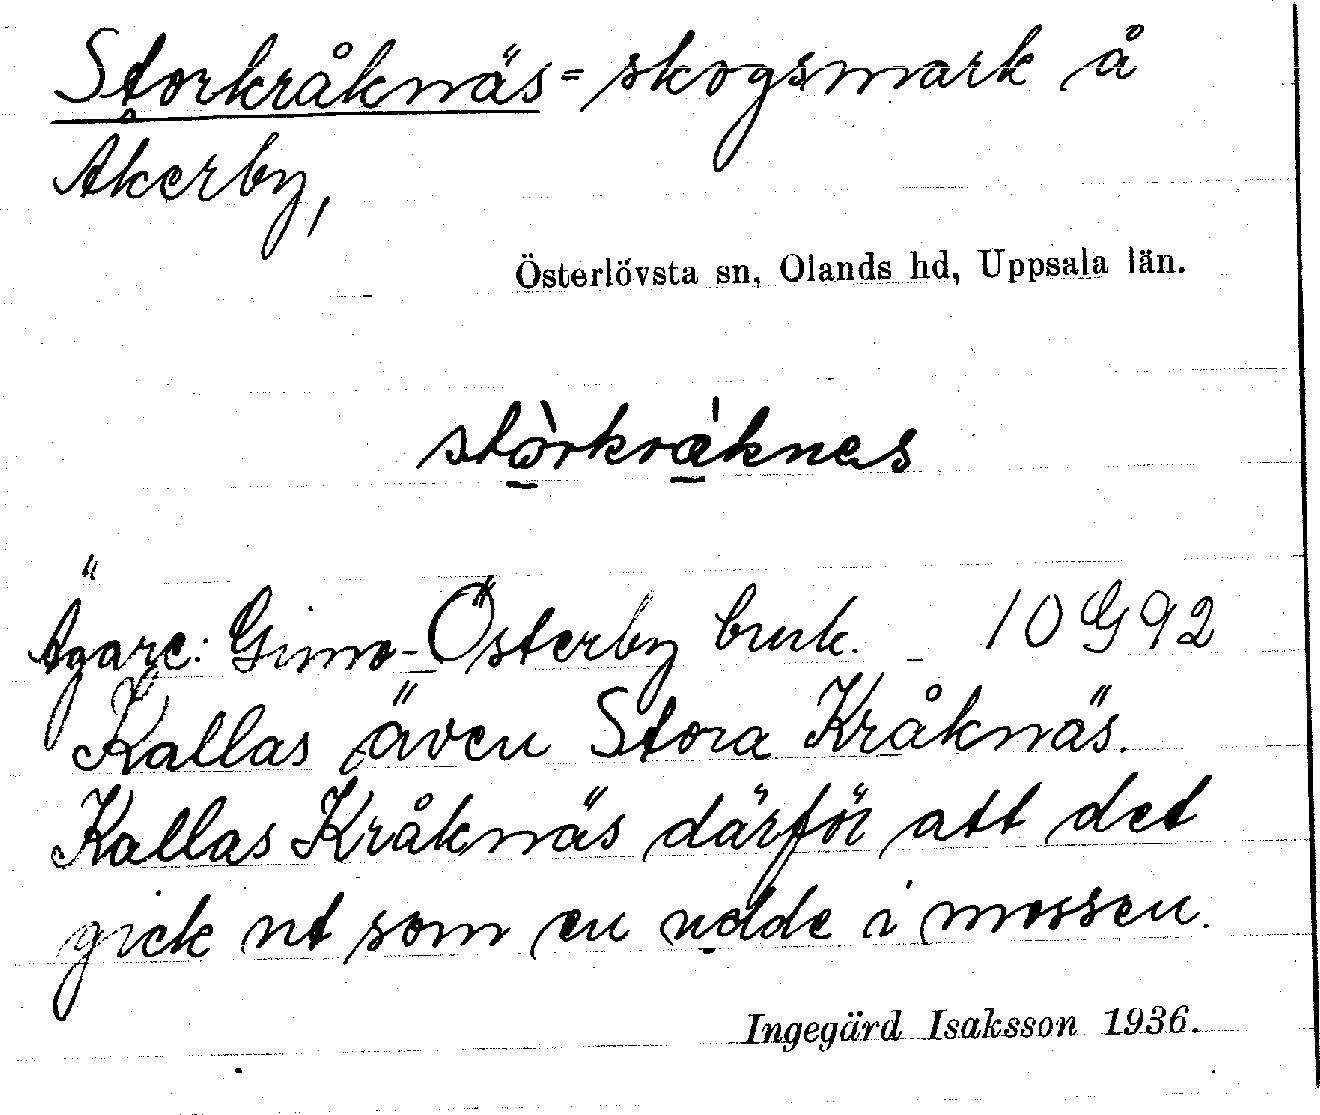 Storkråknäs = skogsmark å
Åkerby,
Österlövsta sn, Olands hd, Uppsala län.
stò̱rkrǽ̱knes
Ägare: Gimo-Österby bruk. 10 G 92
Kallas även Stora Kråknäs.
Kallas Kråknäs därför att det
gick ut som en udde i mossen.
Ingegärd Isaksson 1936.